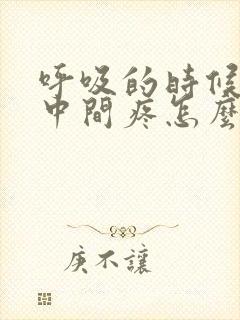 呼吸的時候
中間疼怎麼
庚不讓